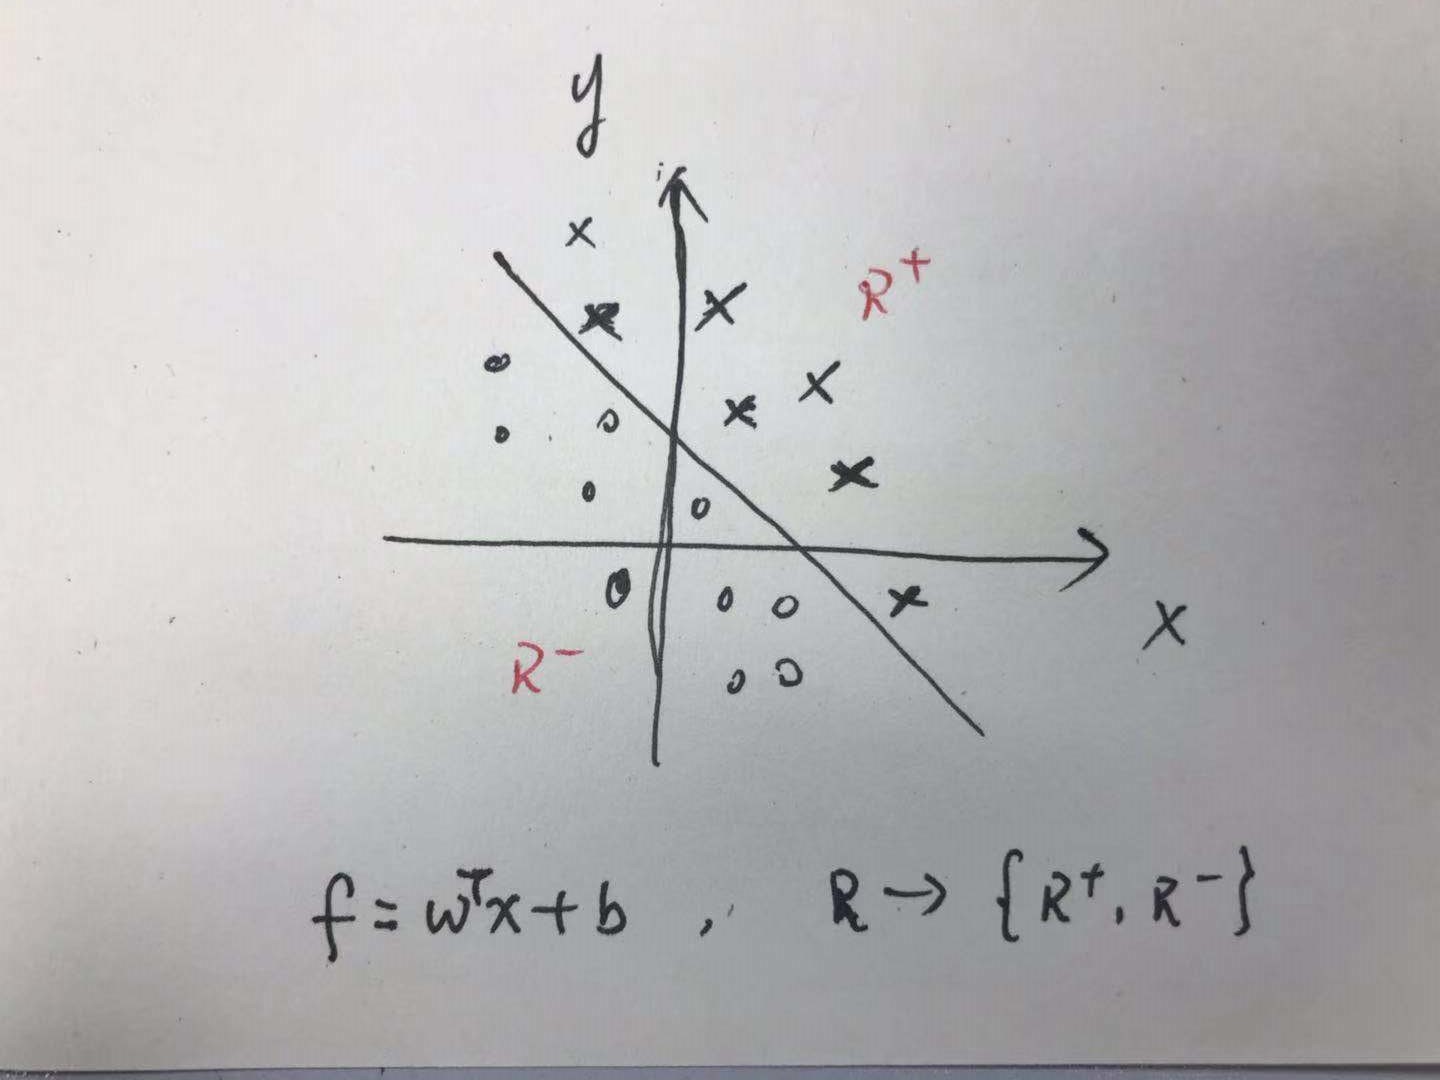 y
R⁺
R⁻
x
f = wᵀx + b , R → {R⁺, R⁻}